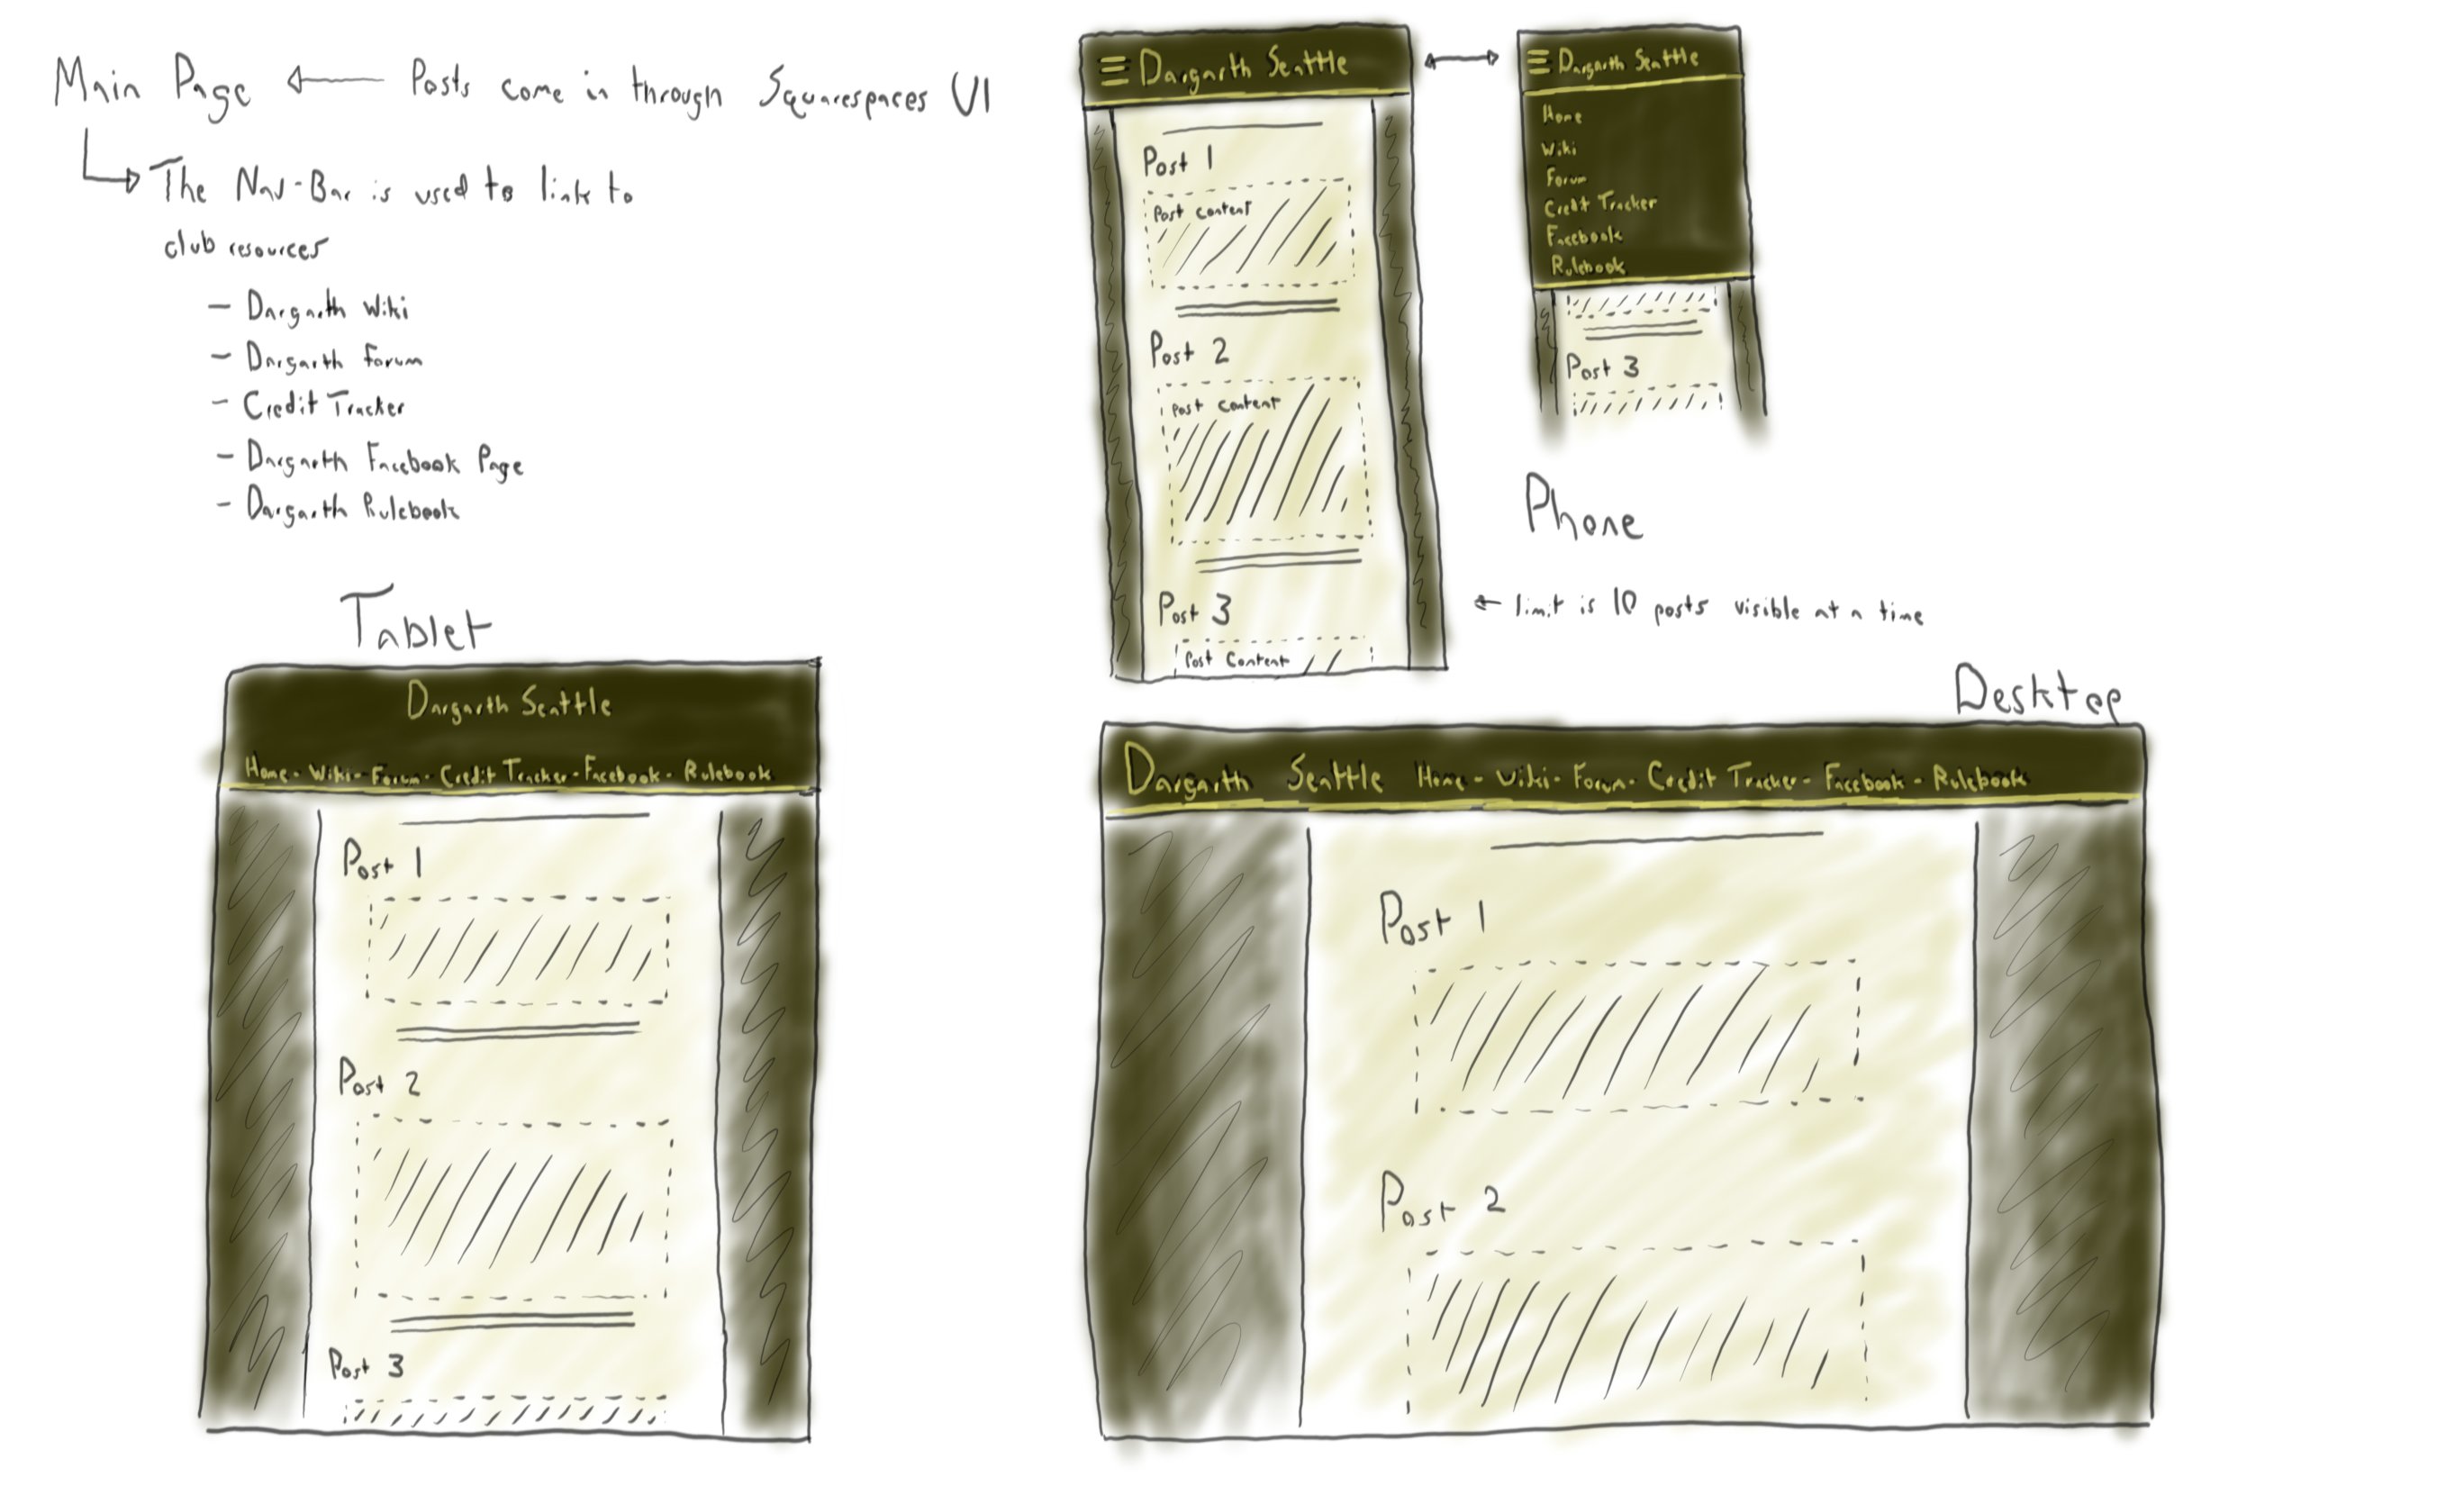 Main Page ← Posts come in through Squarespaces UI
The Nav-Bar is used to link to
club resources
- Dargarth Wiki
- Dargarth Forum
- Credit Tracker
- Dargarth Facebook Page
- Dargarth Rulebook
☰ Dargarth Seattle
Post 1
Post content
Post 2
Post content
Post 3
Post Content
☰ Dargarth Seattle
Home
Wiki
Forum
Credit Tracker
Facebook
Rulebook
Post 3
Phone
← limit is 10 posts visible at a time
Tablet
Dargarth Seattle
Home - Wiki - Forum - Credit Tracker - Facebook - Rulebook
Post 1
Post 2
Post 3
Desktop
Dargarth Seattle Home - Wiki - Forum - Credit Tracker - Facebook - Rulebook
Post 1
Post 2